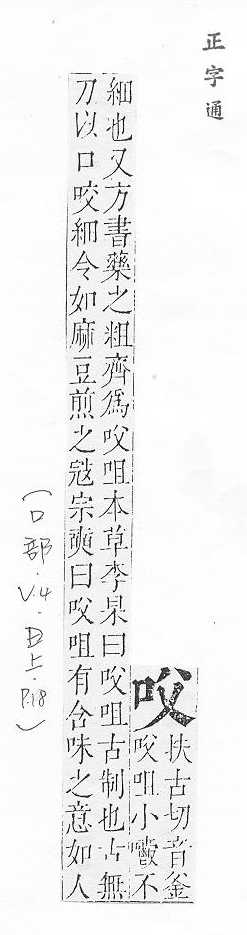 正字通
㕮
扶古切音釜
㕮咀小嚼不
細也又方書藥之粗齊爲㕮咀本草李杲曰㕮咀古制也古無
刀以口咬細令如麻豆煎之宼宗奭曰㕮咀有含味之意如人
(口部.V.4.丑上.P.18)